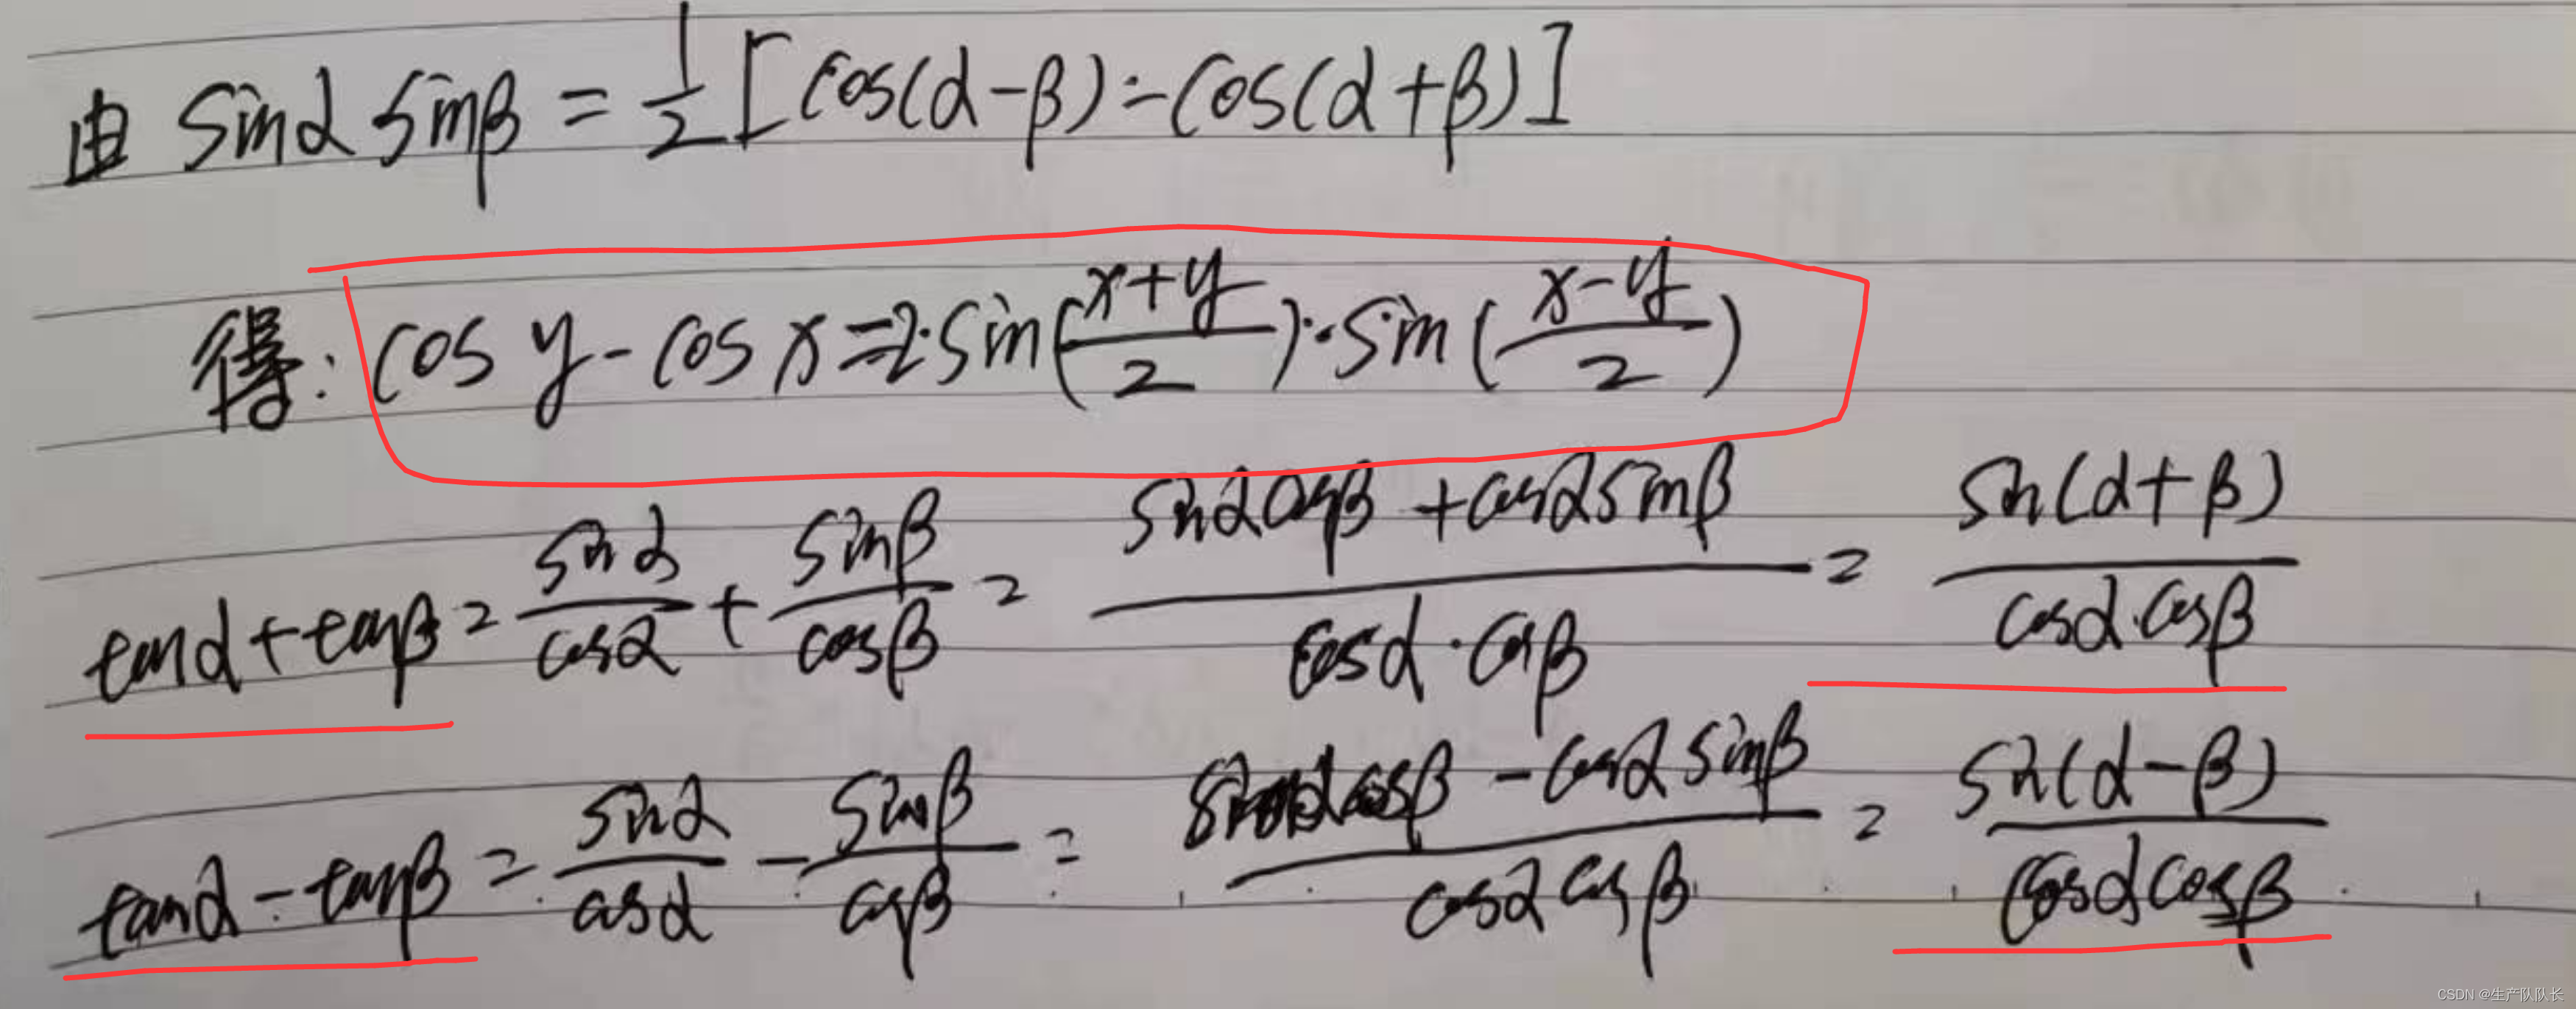 由 sinα sinβ = 1/2 [cos(α-β) - cos(α+β)]
得: cos y - cos x = 2·sin((x+y)/2)·sin((x-y)/2)
tanα + tanβ = sinα/cosα + sinβ/cosβ = (sinαcosβ + cosαsinβ)/(cosα·cosβ) = sin(α+β)/(cosα·cosβ)
tanα - tanβ = sinα/cosα - sinβ/cosβ = (sinαcosβ - cosαsinβ)/(cosαcosβ) = sin(α-β)/(cosαcosβ)
CSDN @生产队队长